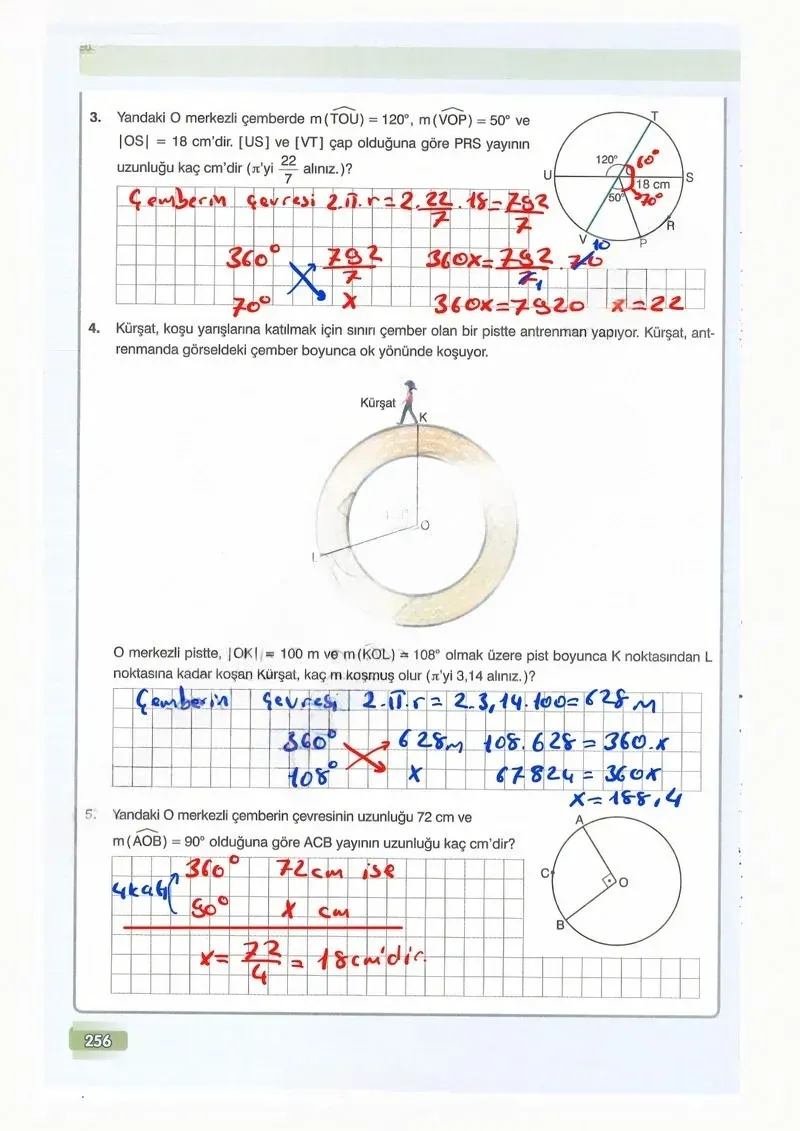 3. Yandaki O merkezli çemberde m(TOU) = 120°, m(VOP) = 50° ve
|OS| = 18 cm'dir. [US] ve [VT] çap olduğuna göre PRS yayının
uzunluğu kaç cm'dir (π'yi 22/7 alınız.)?
T
120°
60°
U
S
18 cm
50°
70°
R
V
P
Çemberin çevresi 2.π.r = 2.22/7.18 = 792/7
360° 792/7 360x = 792/7.70
10
1
70° x 360x = 7920 x = 22
4. Kürşat, koşu yarışlarına katılmak için sınırı çember olan bir pistte antrenman yapıyor. Kürşat, ant-
renmanda görseldeki çember boyunca ok yönünde koşuyor.
Kürşat
K
O
L
O merkezli pistte, |OK| = 100 m ve m(KOL) = 108° olmak üzere pist boyunca K noktasından L
noktasına kadar koşan Kürşat, kaç m koşmuş olur (π'yi 3,14 alınız.)?
Çemberin çevresi 2.π.r = 2.3,14.100 = 628 m
360° 628m 108.628 = 360.x
108° x 67824 = 360x
x = 188,4
5. Yandaki O merkezli çemberin çevresinin uzunluğu 72 cm ve
m(AOB) = 90° olduğuna göre ACB yayının uzunluğu kaç cm'dir?
A
C
O
B
360° 72 cm ise
4 katı
90° x cm
x = 72/4 = 18 cm'dir.
256